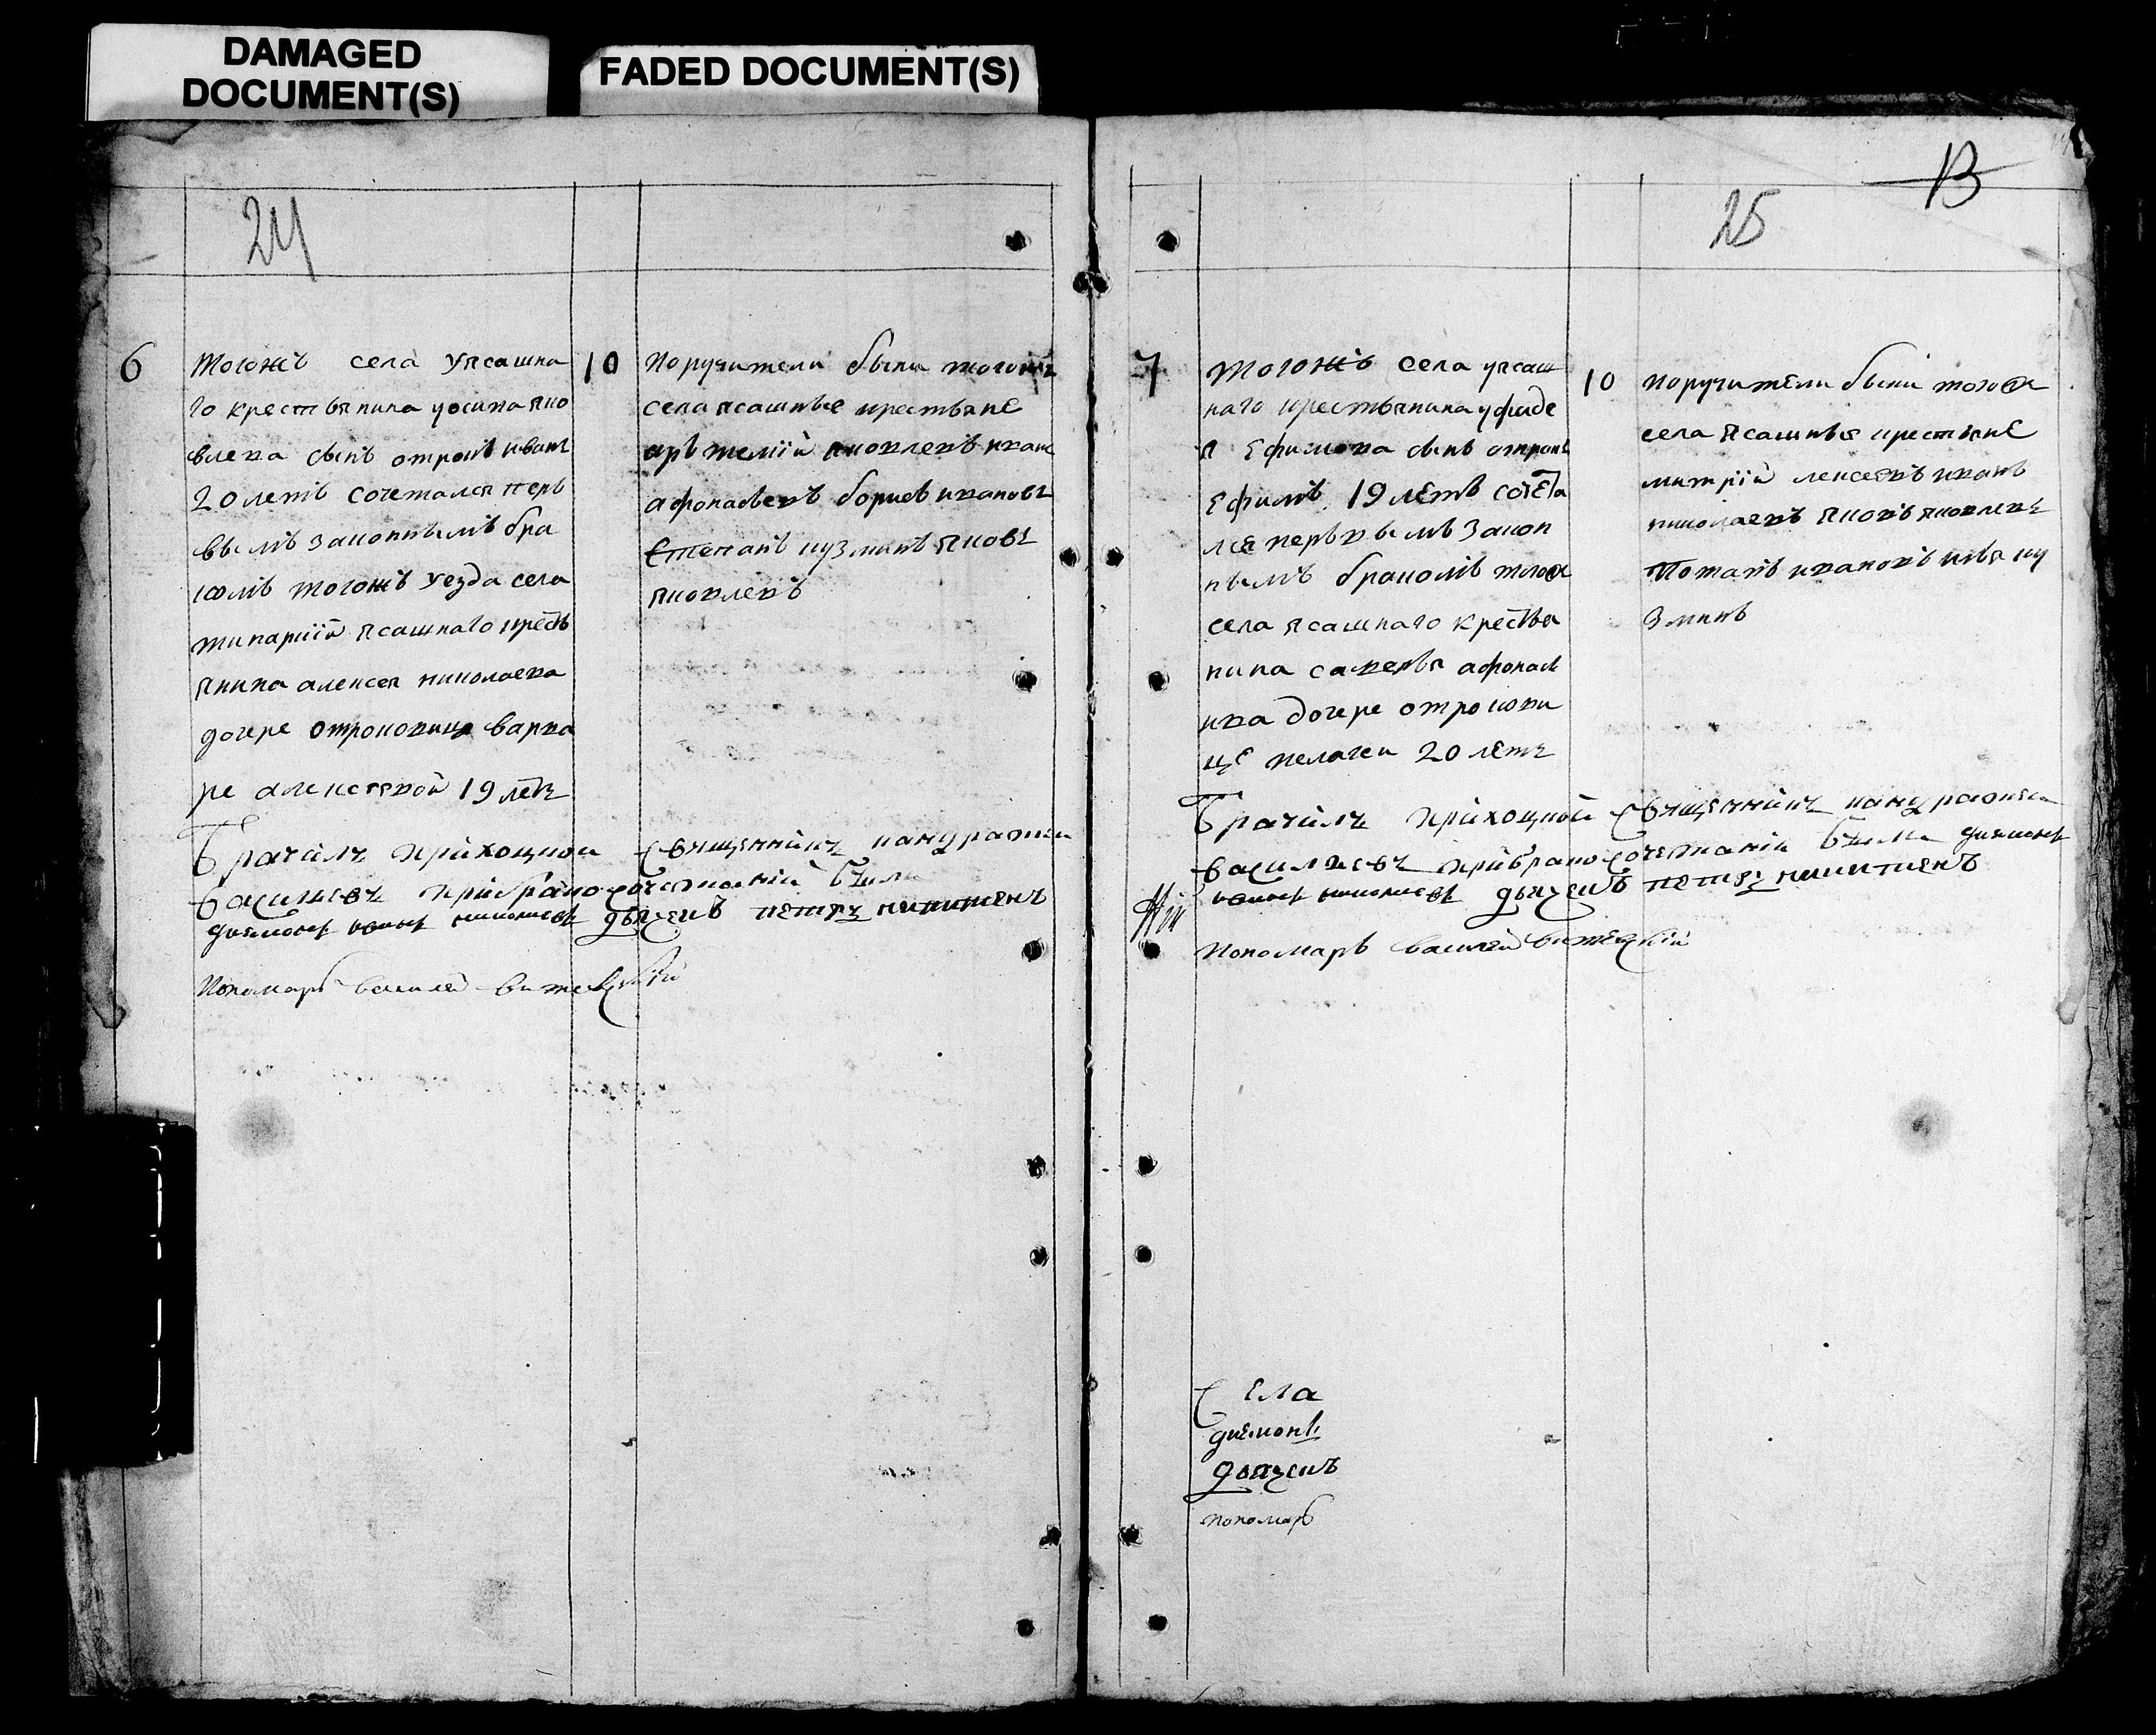 DAMAGED
DOCUMENT(S)
FADED DOCUMENT(S)
24
6
тогожъ села уясашна
го крестьянина уосипа яко
влева сынъ отрокъ иванъ
20 летъ сочетался перъ
вымъ законнымъ бра
комъ тогожъ уезда села
ясашнаго крестъ
янина алексея николаева
дочере отроковице варва
ре алексеевой 19 летъ
10
Поручители были тогожъ
села ясашные крестьяне
аръ темiй яковлевъ иванъ
афонасьевъ борисъ ивановъ
Степанъ кузминъ яковъ
яковлевъ
Брачилъ приходной священникъ кандратей
василиевъ при брако сочетанiи были
диаконъ иванъ дьячекъ петръ никитиевъ
Пономарь василей
13
25
7
тогожъ села уясаш
наго крестьянина уфаде
я ефимова сынъ отрокъ
ефимъ 19 летъ сочета
лся перъвымъ закон
нымъ бракомъ тогож
села ясашнаго крестья
нина савелья афонась
ива дочере отрокови
це пелагеи 20 летъ
10
поручители были тогож
села ясашныя крестьяне
митрiй алексеевъ иванъ
николаевъ яковъ яковлевъ
Потапъ ивановъ илья ку
зминъ
Брачилъ приходной священникъ кандратей
василиевъ при брако сочетанiи были диаконъ
иванъ дьячекъ петръ никитиевъ
Пономарь василей
Села
диаконъ
дьячекъ
пономарь